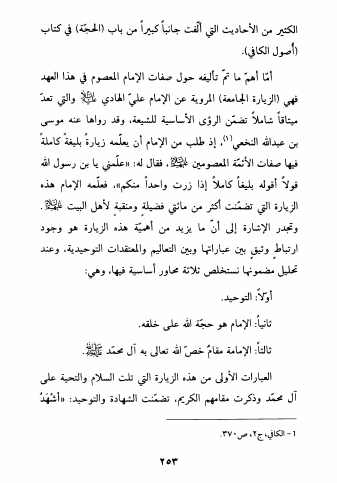 الكثير من الأحاديث التي ألّفت جانباً كبيراً من باب (الحجّة) في كتاب
(أُصول الكافي).
أمّا أهم ما تمّ تأليفه حول صفات الإمام المعصوم في هذا العهد
فهي (الزيارة الجامعة) المروية عن الإمام عليّ الهادي عليه السلام والتي تعدّ
ميثاقاً شاملاً تضمّن الرؤى الأساسية للشيعة، وقد رواها عنه موسى
بن عبدالله النخعي(١)، إذ طلب من الإمام أن يعلّمه زيارةً بليغةً كاملةً
فيها صفات الأئمّة المعصومين عليهم السلام، فقال له: «علّمني يا بن رسول الله
قولاً أقوله بليغاً كاملاً إذا زرت واحداً منكم»، فعلّمه الإمام هذه
الزيارة التي تضمّنت أكثر من مائتي فضيلةٍ ومنقبةٍ لأهل البيت عليهم السلام.
وتجدر الإشارة إلى أنّ ما يزيد من أهميّة هذه الزيارة هو وجود
ارتباطٍ وثيقٍ بين عباراتها وبين التعاليم والمعتقدات التوحيدية، وعند
تحليل مضمونها نستخلص ثلاثة محاور أساسية فيها، وهي:
أوّلاً: التوحيد.
ثانياً: الإمام هو حجّة الله على خلقه.
ثالثاً: الإمامة مقامٌ خصّ الله تعالى به آل محمّد ﷺ.
العبارات الأُولى من هذه الزيارة التي تلت السلام والتحية على
آل محمّد وذكرت مقامهم الكريم، تضمّنت الشهادة والتوحيد: «أَشْهَدُ
١- الكافي، ج٢، ص٣٧٠.
٢٥٣